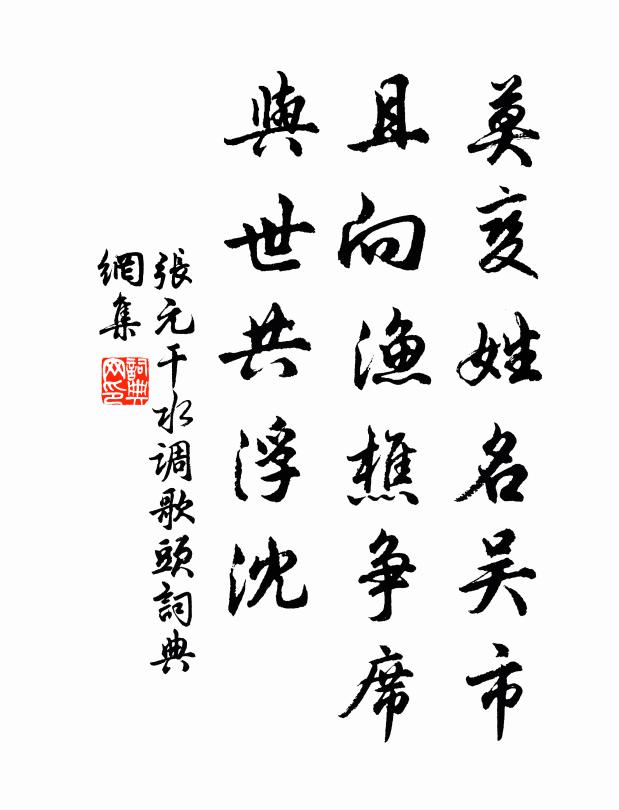 莫变姓名吴市
且向渔樵争席
與世共浮沈
張元干水调歌頭詞典
網集
詞典
网印